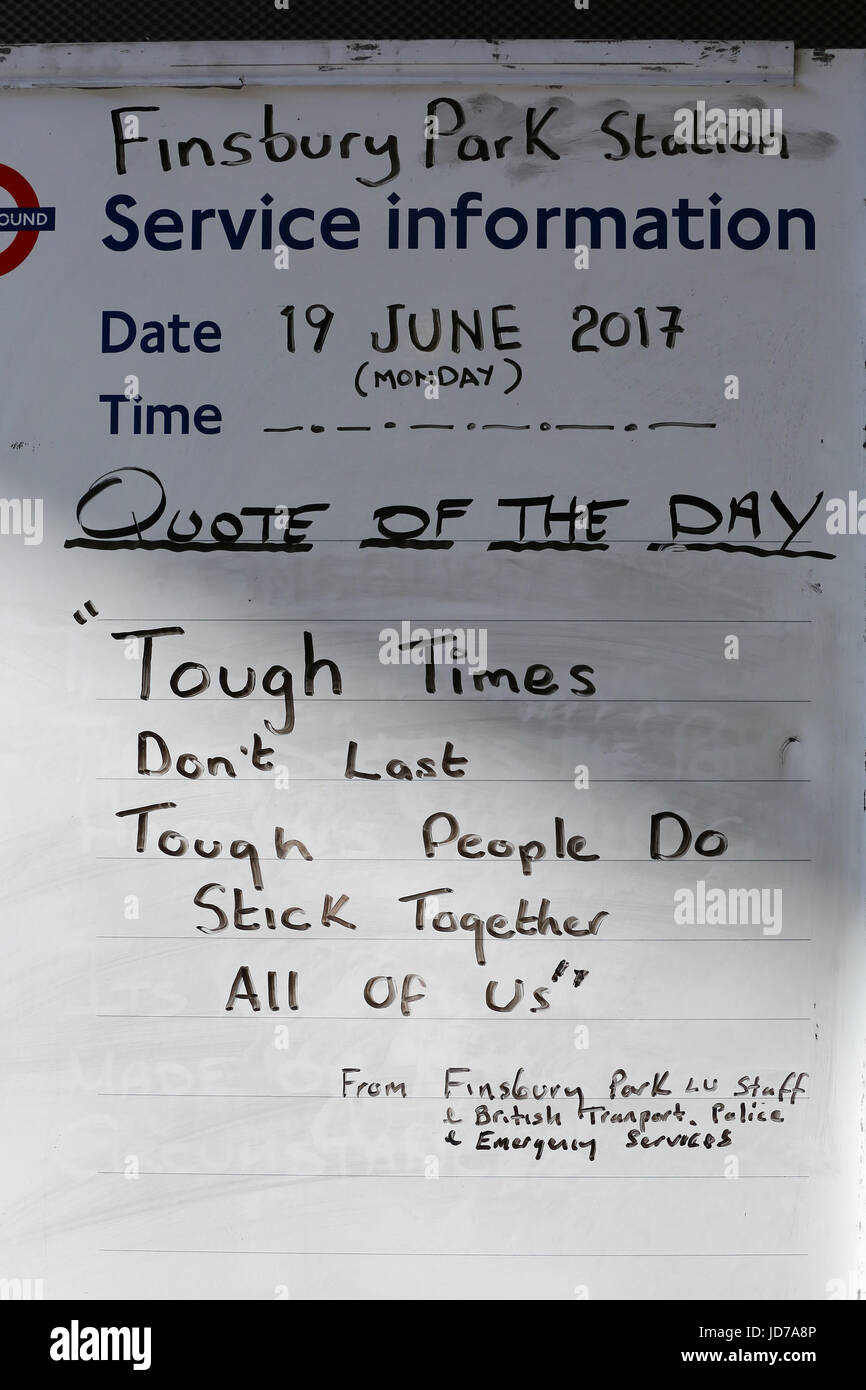 Finsbury Park Station
OUND
Service information
Date 19 JUNE 2017
(MONDAY)
Time
QUOTE OF THE DAY
"Tough Times
Don't Last
Tough People Do
Stick Together
All Of Us"
From Finsbury Park LU Staff
& British Tranport. Police
& Emergency Services
alamy
a
alamy stock photo
JD7A8P
www.alamy.com